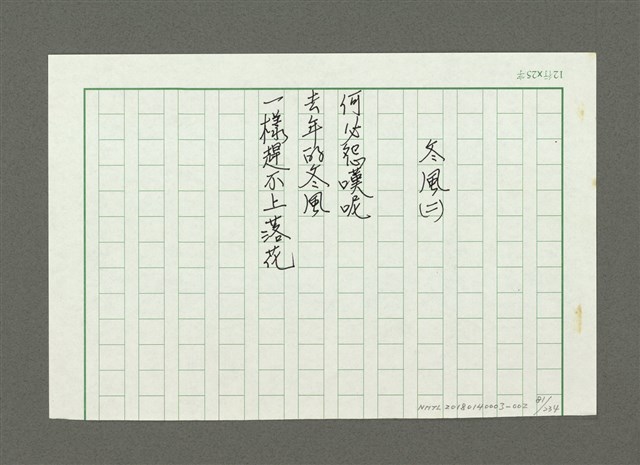 12行×25字
冬風(二)
何必怨嘆呢
去年的冬風
一樣趕不上落花
NMTL20180140003-002
81/234